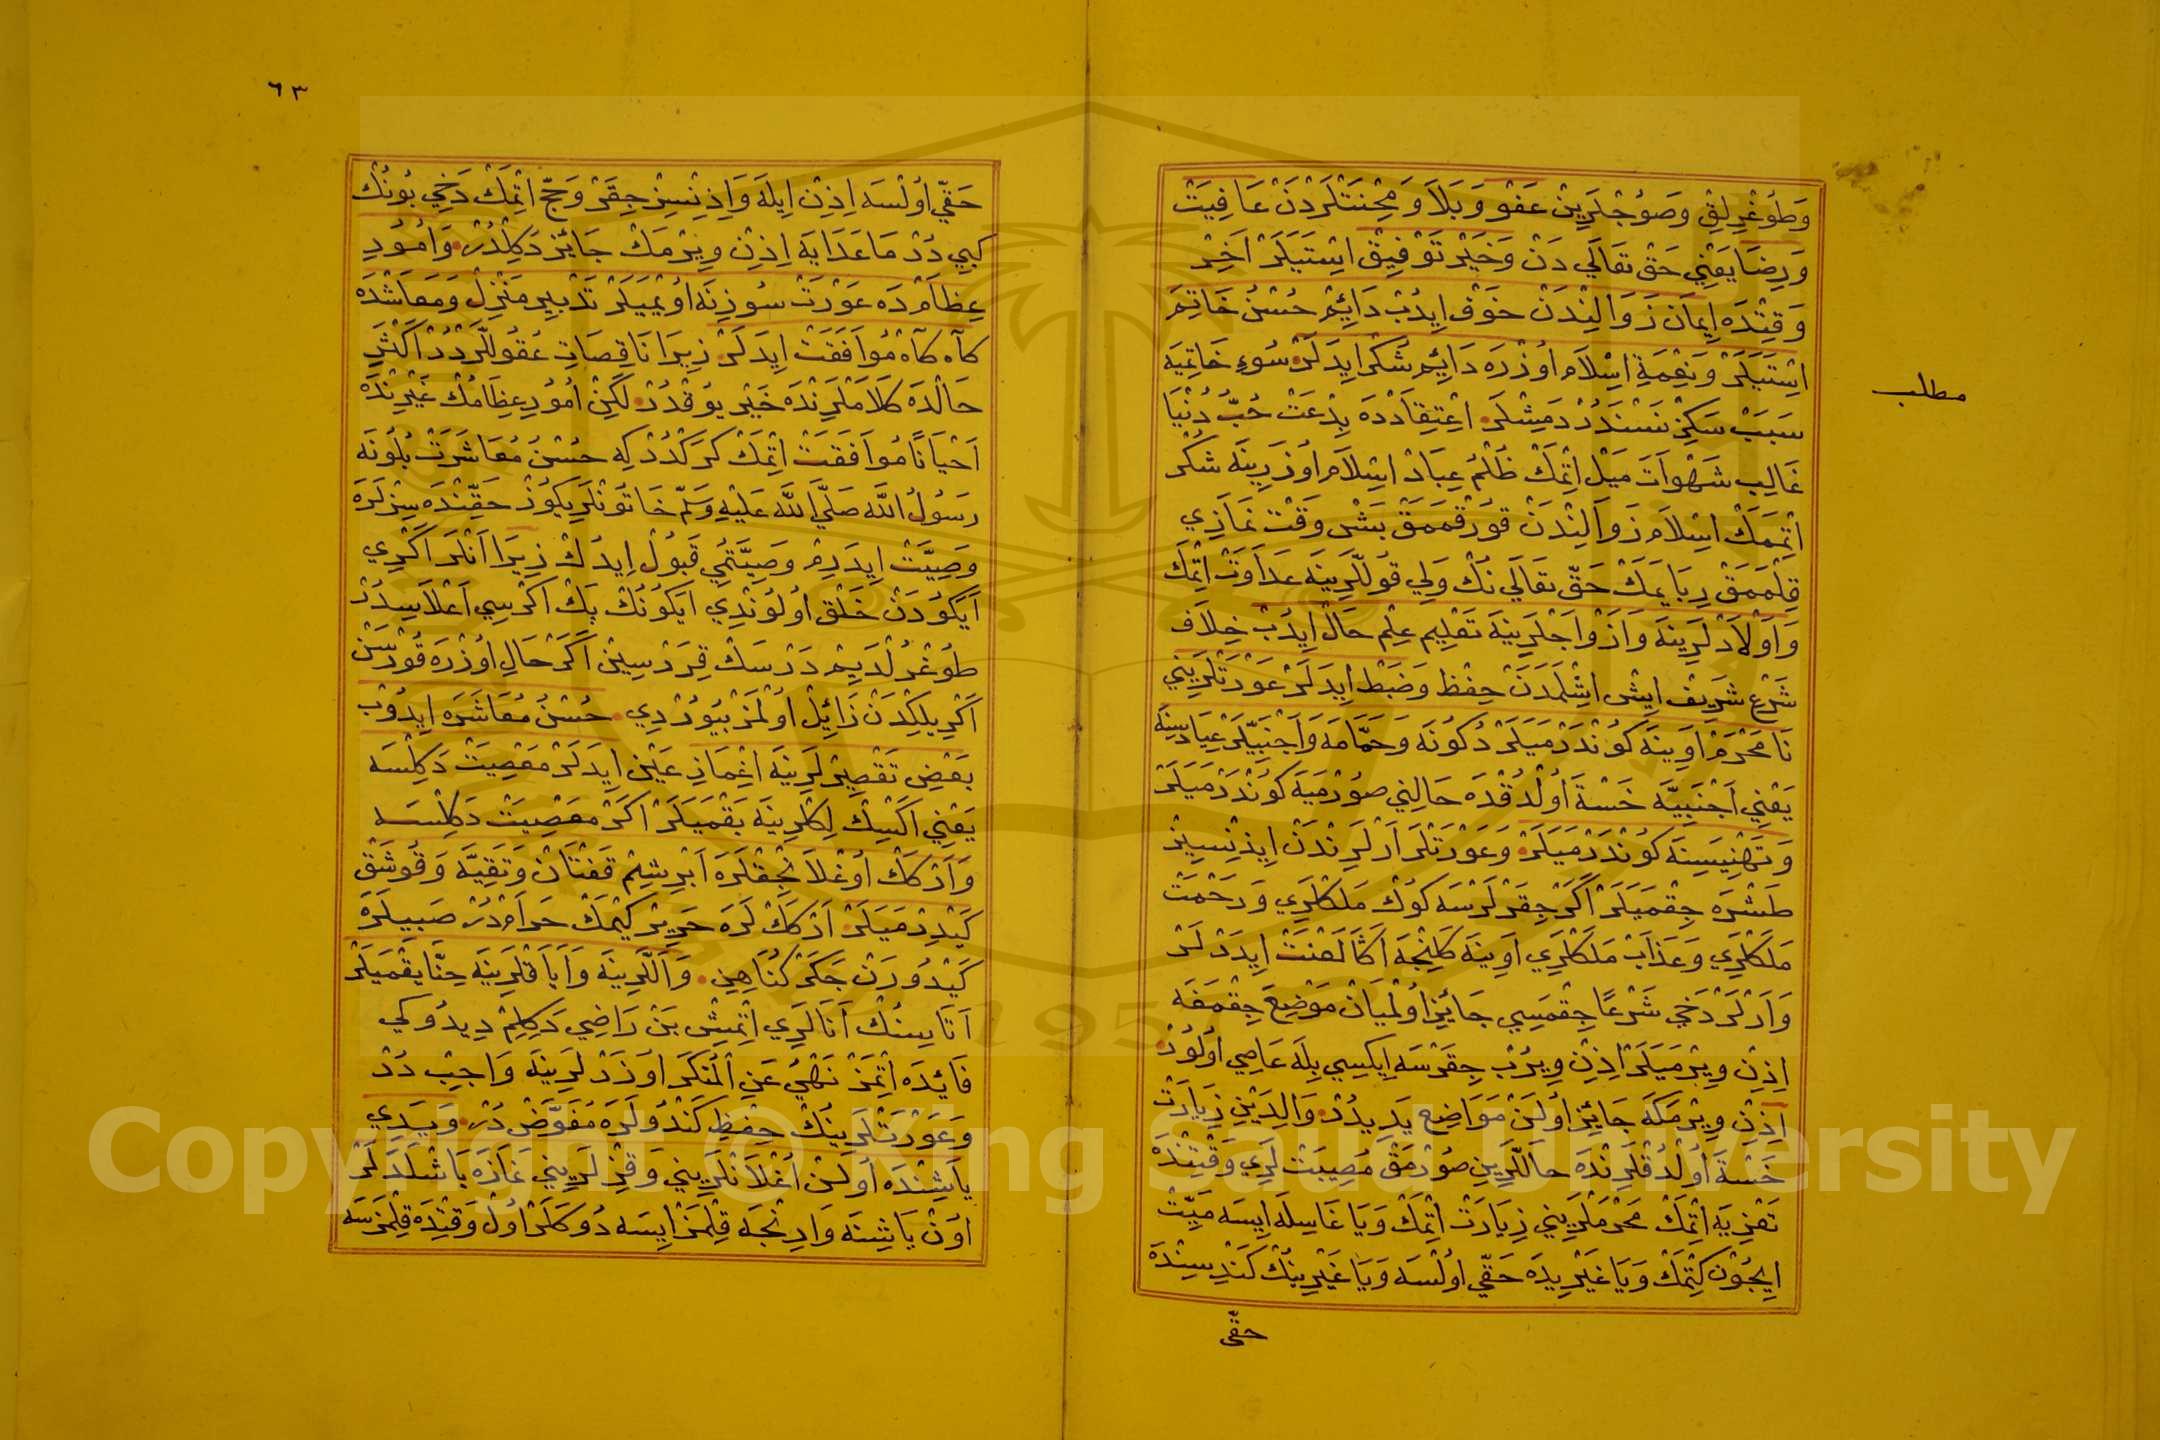 وَطُوغْرِلِقْ وَصُوجْلَرِينْ عَفْو وَبَلَا وَمِحْنَتْلَرْدَنْ عَافِيَتْ
وَرِضَا يَعْنِي حَقْ تَعَالَي دَنْ وَخَيْرْ تَوْفِيقْ اِسْتَيَلَرْ اَخِرْ
وَقِتْدَه اِيمَانْ زَوَالِنْدَنْ خَوْف اِيدُبْ دَائِمْ حُسْنُ خَاتِمَه
اِسْتَيَلَرْ وَنِعْمَةِ اِسْلَام اُوزْرَه دَائِمْ شُكْر ايدَلَرْ سُوءِ خَاتِمَيَه
سَبَبْ سَكِزْ نَسْنَدُرْ دَمِشْلَرْ اِعْتِقَادْدَه بِدْعَتْ حُبُّ دُنْيَا
غَالِب شَهْوَاتَ مَيْل اِتْمَكْ ظُلْمُ عِبَادْ اِسْلَام اُوزَرِينَه شُكْر
اِتْمَمَكْ اِسْلَام زَوَالِنْدَنْ قُورْقمَمَقْ بَشْ وَقْتْ نَمَازِي
قِلْمَمَقْ رِبَا يَمَكْ حَقّ تَعَالَي نُكْ وَلِي قُوللَّرِينَه عَدَاوَتْ اِتْمَكْ
وَاَوْلَادْلَرِينَه وَاَزْوَاجْلَرِينَه تَعْلِيم عِلْم حَالْ اِيدُبْ خِلَافِ
شَرْعِ شَرِيفْ اِيشْ اِشْلَمَدَنْ حِفْظ وَضَبْط اِيدَلَرْ عَوْرَتْلَرِينِي
نَامَحْرَمْ اَوِينَه كُونْدَرْمَيَلَرْ دُكُونَه وَحَمَّامَه وَاَجْنَبِيّلَرْ عِيَادَتِينَه
يَعْنِي اَجْنَبِيَّه خَسْتَه اُولْدُقْدَه حَالِنِي صُورْمَيَه كُونْدَرْمَيَلَرْ
وَتَهْنِيَسِنَه كُونْدَرْمَيَلَرْ وَعَوْرَتْلَرْ اَرْلَرِنْدَنْ اِيذِنْسِيزْ
طَشْرَه چِقْمَيَلَرْ اَكَرْ چِقَرْلَرْسَه كُوكْ مَلَكْلَرِي وَرَحْمَتْ
مَلَكْلَرِي وَعَذَابْ مَلَكْلَرِي اَوِينَه كَلِنْجَه اَكَا لَعْنَتْ اِيدَرْلَرْ
وَاَرْلَرْ دَخِي شَرْعًا چِقْمَسِي جَائِز اُولْمَيَانْ مَوْضِعَ چِقْمَغَه
اِذِنْ وِيرْمَيَلَرْ اِذِنْ وِيرُبْ چِقَرْسَه اِيكِسِي بِلَه عَاصِي اُولُورْ
اِذِنْ وِيرْمَكَه جَائِز اُولَنْ مَوَاضِع يَدِيدُرْ وَالِدَيْنِ زِيَارَتْ
خَسْتَه اُولْدُقْلَرِنْدَه حَاللَّرِينِ صُورْمَقْ مُصِيبَتْ لَرِي وَقْتِنْدَه
تَعْزِيَه اِتْمَكْ مَحْرَمْلَرِينِي زِيَارَتْ اِتْمَكْ وَيَا غَاسِلَه اِيسَه مَيِّتْ
اِيچُونْ كِتْمَكْ وَيَا غَيْرِيدَه حَقِّي اُولْسَه وَيَا غَيْرِينُكْ كَنْدِسِنْدَه
حقّى
مطلب
٦٣
حَقِّي اُولْسَه اِذِنْ اِيلَه وَاِذِنْسِزْ چِقَرْ وَحَجّ اِتْمَكْ دَخِي بُونُكْ
كِبِي دُرْ مَاعَدَايَه اِذِنْ وِيرْمَكْ جَائِز دَكِلْدُرْ وَاُمُورِ
عِظَامْدَه عَوْرَتْ سُوزِنَه اُويْمَيَلَرْ تَدْبِيرِ مَنْزِلْ وَمَعَاشْدَه
كَاه كَاه مُوَافَقَتْ اِيدَلَرْ زِيرَا نَاقِصَاتِ عُقُوللَّرْدُرْ اَكْثَرِ
حَالْدَه كَلَامْلَرِنْدَه خَيْر يُوقْدُرْ لَكِنْ اُمُورِ عِظَامُكْ غَيْرِنْدَه
اَحْيَانًا مُوَافَقَتْ اِتْمَكْ كَرَكْدُرْ كِه حُسْنُ مُعَاشَرَتْ بُلُونَه
رَسُولُ اللّٰه صَلَّي اللّٰه عَلَيْهِ وَسَلَّمْ خَاتُونْلَرِيكُوزْ حَقِّنْدَه سِزْلَرَه
وَصِيَّتْ اِيدَرِمْ وَصِيَّتِمِي قَبُولْ اِيدُكْ زِيرَا اَنْلَرْ اَكْرِي
اَيَكُودَنْ خَلْق اُولُونْدِي اَيَكُونُكْ پَكْ اَكْرِسِي اَعْلَاسِدُرْ
طُوغْرُلْدَيِمْ دَرْسَكْ قِرَرْسِينْ اَكَرْ حَالِ اُوزْرَه قُورْسَنْ
اَكْرِيلِكْدَنْ زَائِلْ اُولْمَزْ بُيُورْدِي حُسْنُ مُعَاشَرَه اِيدُوبْ
بَعْضِ تَقْصِيرْلَرِينَه اِغْمَازِ عَيْن اِيدَلَرْ مَعْصِيَتْ دَكِلْسَه
يَعْنِي اَكْسِكْ لِكْلَرِينَه بَقْمَيَلَرْ اَكَرْ مَعْصِيَتْ دَكِلْسَه
وَاَرْكَكْ اُوغْلَانْجِقْلَرَه اَبْرِشِيمْ قَفْتَانْ وَتَقِيَّه وَقُوشَقْ
كَيْدِرْمَيَلَرْ اَرْكَكْ لَرَه حَرِيرْ كَيْمَكْ حَرَامْدُرْ صَبِيلَرَه
كَيْدُورَنْ چَكَرْ كُنَاهِنِ وَاَللَّرِينَه وَاَيَاقْلَرِينَه حِنَّا يَقْمَيَلَرْ
اَتَاسِنُكْ اَنَالَرِي اِتْمِيشْ بَنْ رَاضِي دَكِلِمْ دِيدُوكِي
فَائِدَه اِتْمَزْ نَهْيُ عَنِ الْمُنْكَرْ اُوزَرْلَرِينَه وَاجِبْ دُرْ
وَعَوْرَتْلَرِينُكْ حِفْظِ كَنْدُولَرَه مُفَوَّضْ دُرْ وَيَدِي
يَاشِنْدَه اُولَنْ اُغْلَانْلَرِينِي وَقِزْلَرِينِي نَمَازَه بَاشْلَدَلَرْ
اُونْ يَاشِنَه وَارِنْجَه قِلْمَزْ اِيسَه دُوكَلَرْ اُولْ وَقِتْدَه قِلْمَزْسَه
Copyright © King Saud University
1957